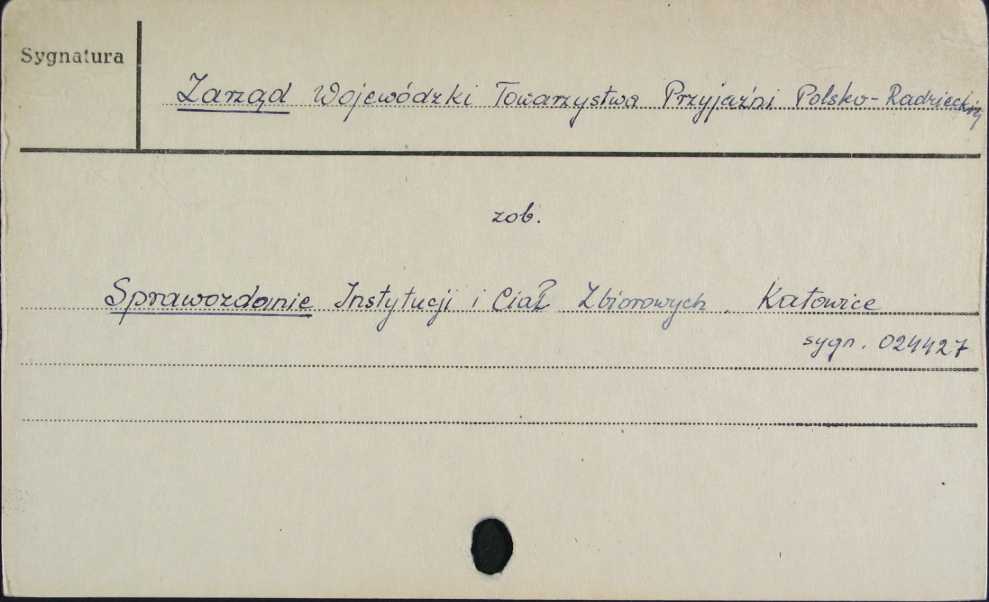 Sygnatura
Zarząd Wojewódzki Towarzystwa Przyjaźni Polsko-Radzieckiej
zob.
Sprawozdanie Instytucji i Ciał Zbiorowych. Katowice
sygn. 024427